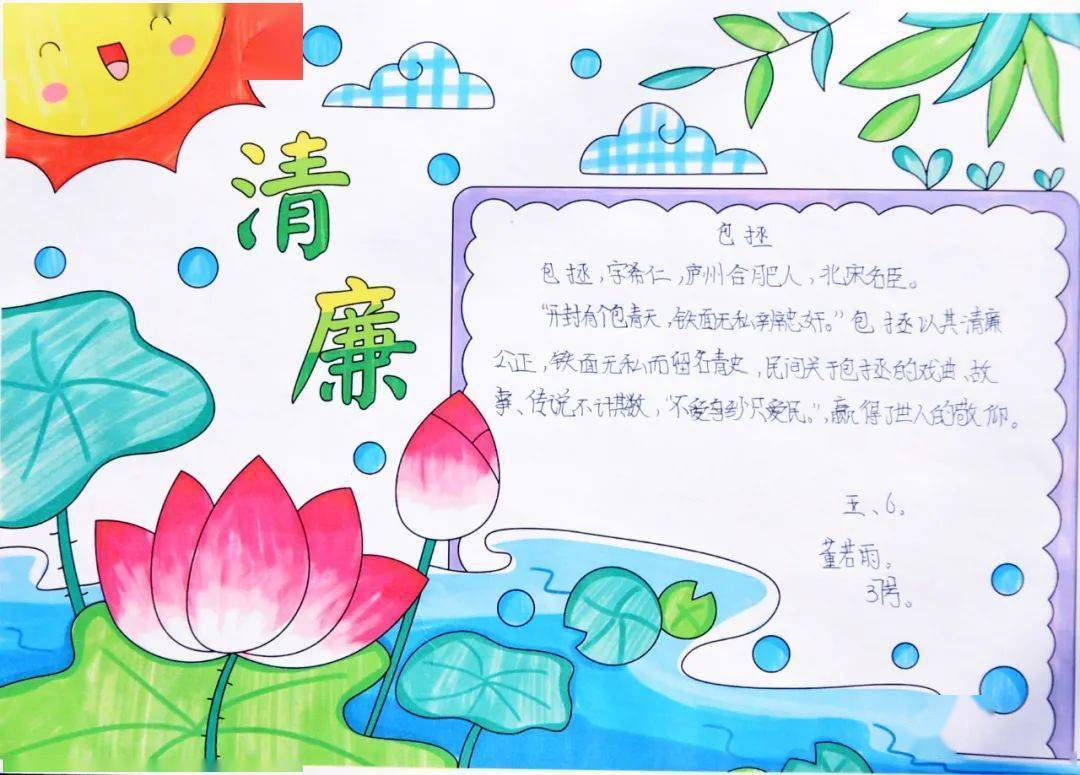 清
廉
包拯
包拯，字希仁，庐州合肥人，北宋名臣。
“开封有个包青天，铁面无私辨忠奸。”包拯以其清廉
公正，铁面无私而留名青史，民间关于包拯的戏曲、故
事、传说不计其数，“不爱乌纱只爱民。”，赢得了世人的敬仰。
五、6。
董若雨。
3号。